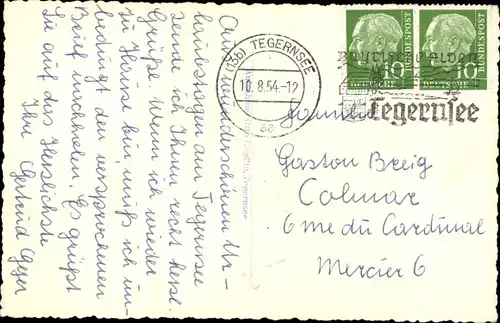 Aus wunderschönen Ur-
laubstagen am Tegernsee
sende ich Ihnen recht herzl.
Grüße. Wenn ich wieder
zu Hause bin, muß ich un-
bedingt den versprochenen
Brief nachholen. Es grüßt
Sie auf das Herzlichste
Ihre Gertrud Geyer
(13b) TEGERNSEE
10.8.54.-12
aa
10
DEUTSCHE
BUNDESPOST
10
DEUTSCHE
BUNDESPOST
Tegernsee
Familie
Gaston Breig
Colmar
6 me du Cardinal
Mercier 6